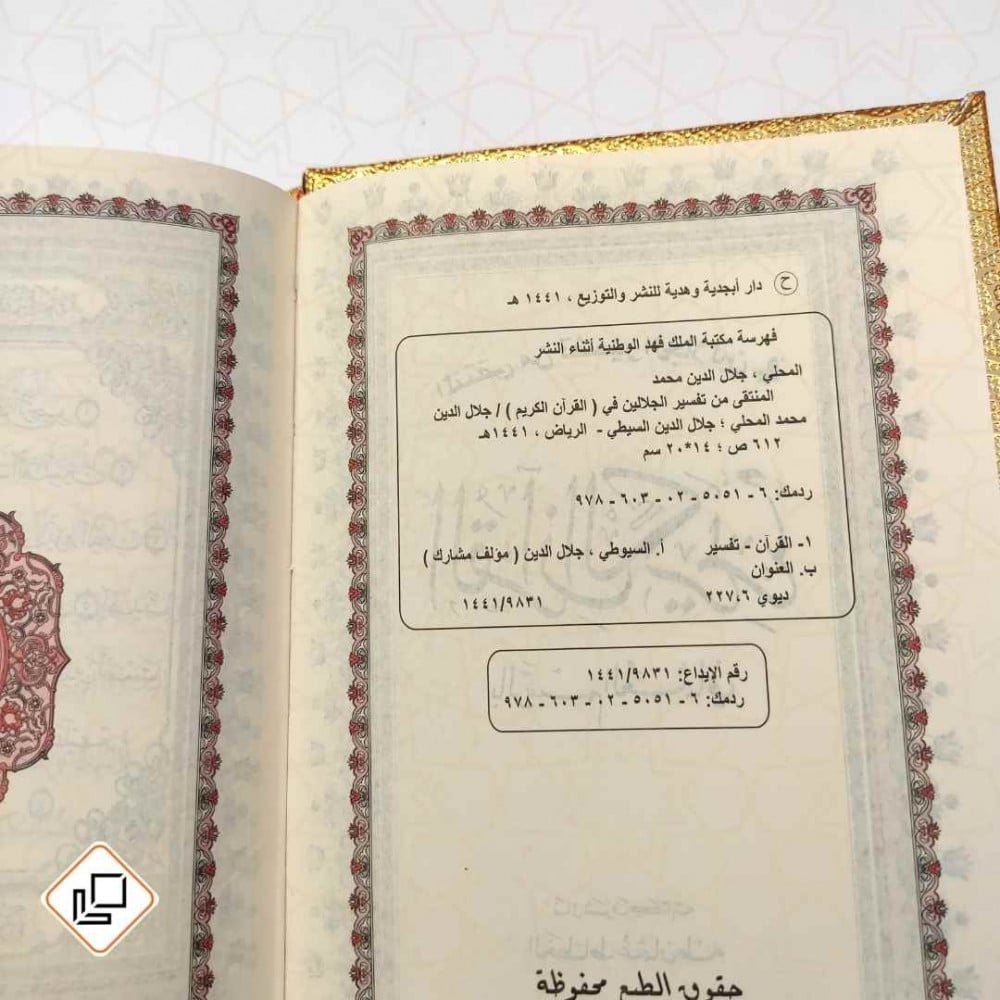 ح دار أبجدية وهدية للنشر والتوزيع ، ١٤٤١ هـ
فهرسة مكتبة الملك فهد الوطنية أثناء النشر
المحلي ، جلال الدين محمد
المنتقى من تفسير الجلالين في ( القرآن الكريم ) / جلال الدين
محمد المحلي ؛ جلال الدين السيطي - الرياض ، ١٤٤١هـ
٦١٢ ص ؛ ١٤*٢٠ سم
ردمك: ٦ - ٥٠٥١ - ٠٢ - ٦٠٣ - ٩٧٨
١- القرآن - تفسير أ. السيوطي ، جلال الدين ( مؤلف مشارك )
ب. العنوان
ديوي ٢٢٧،٦ ١٤٤١/٩٨٣١
رقم الإيداع: ١٤٤١/٩٨٣١
ردمك: ٦ - ٥٠٥١ - ٠٢ - ٦٠٣ - ٩٧٨
حقوق الطبع محفوظة